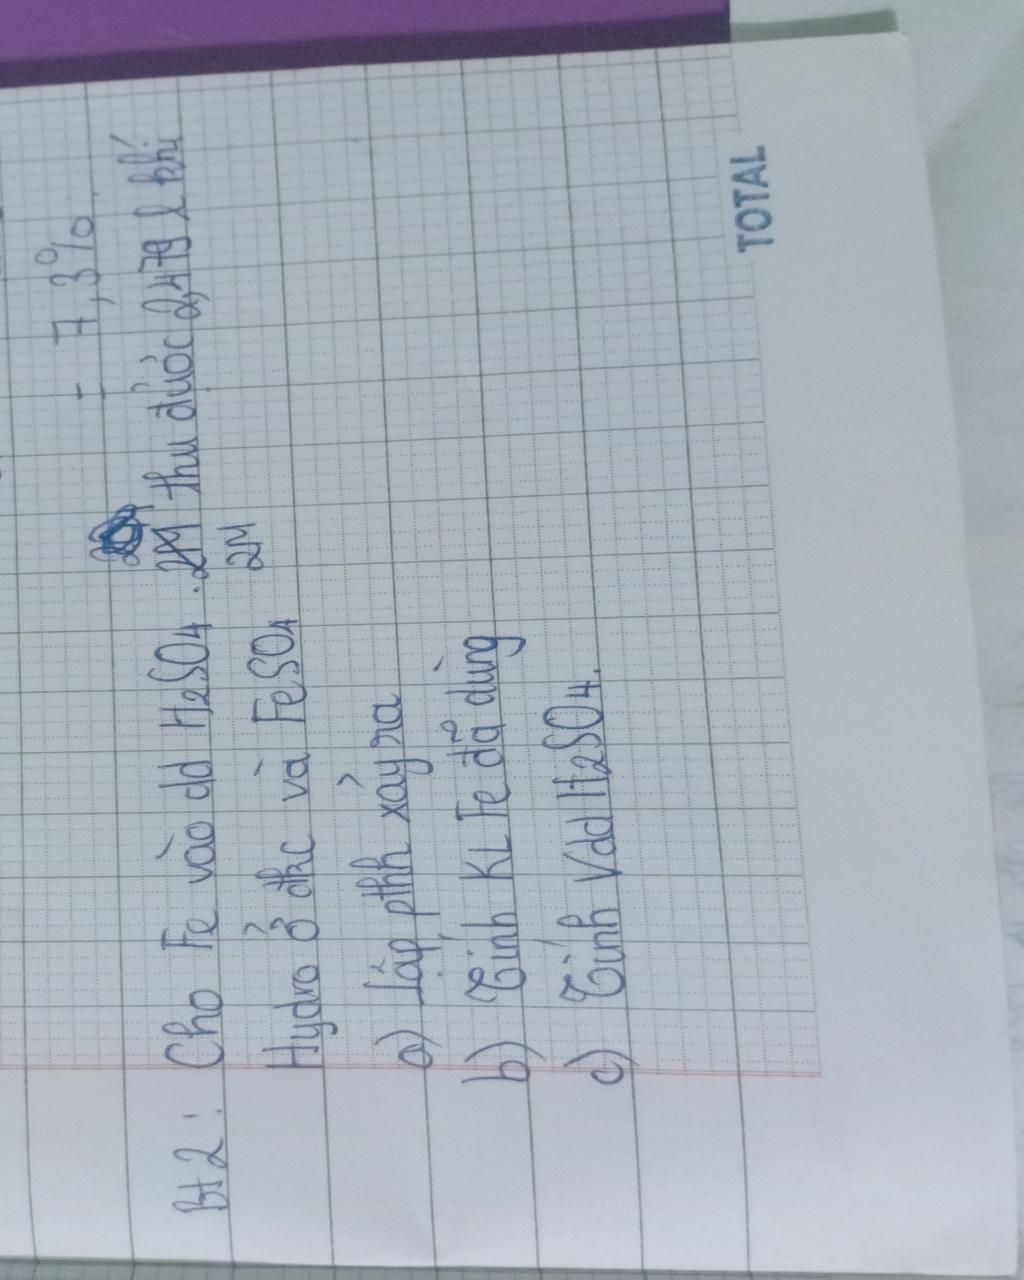 - 7,3%
Bt2: Cho Fe vào dd H2SO4. 2M thu được 2,479 l khí
Hydro ở đkc và FeSO4 2M
a) Lập pthh xảy ra
b) Tính KL Fe đã dùng
c) Tính Vdd H2SO4.
TOTAL